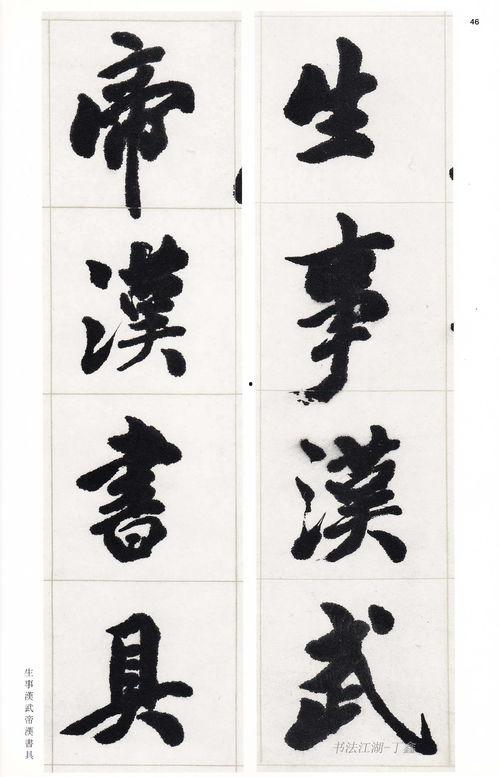 46
生事漢武
帝漢書具
生事漢武帝漢書具
书法江湖-丁鑫